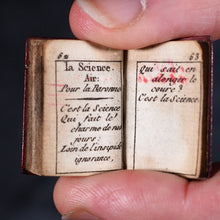 60
la Science.
Air:
Pour la Baronne
C'est la Science
Qui fait le
charme de nos
jours:
Loin de l'insipide
ignorance,
63
Qui sait en
alonger le
cours?
C'est la Science.